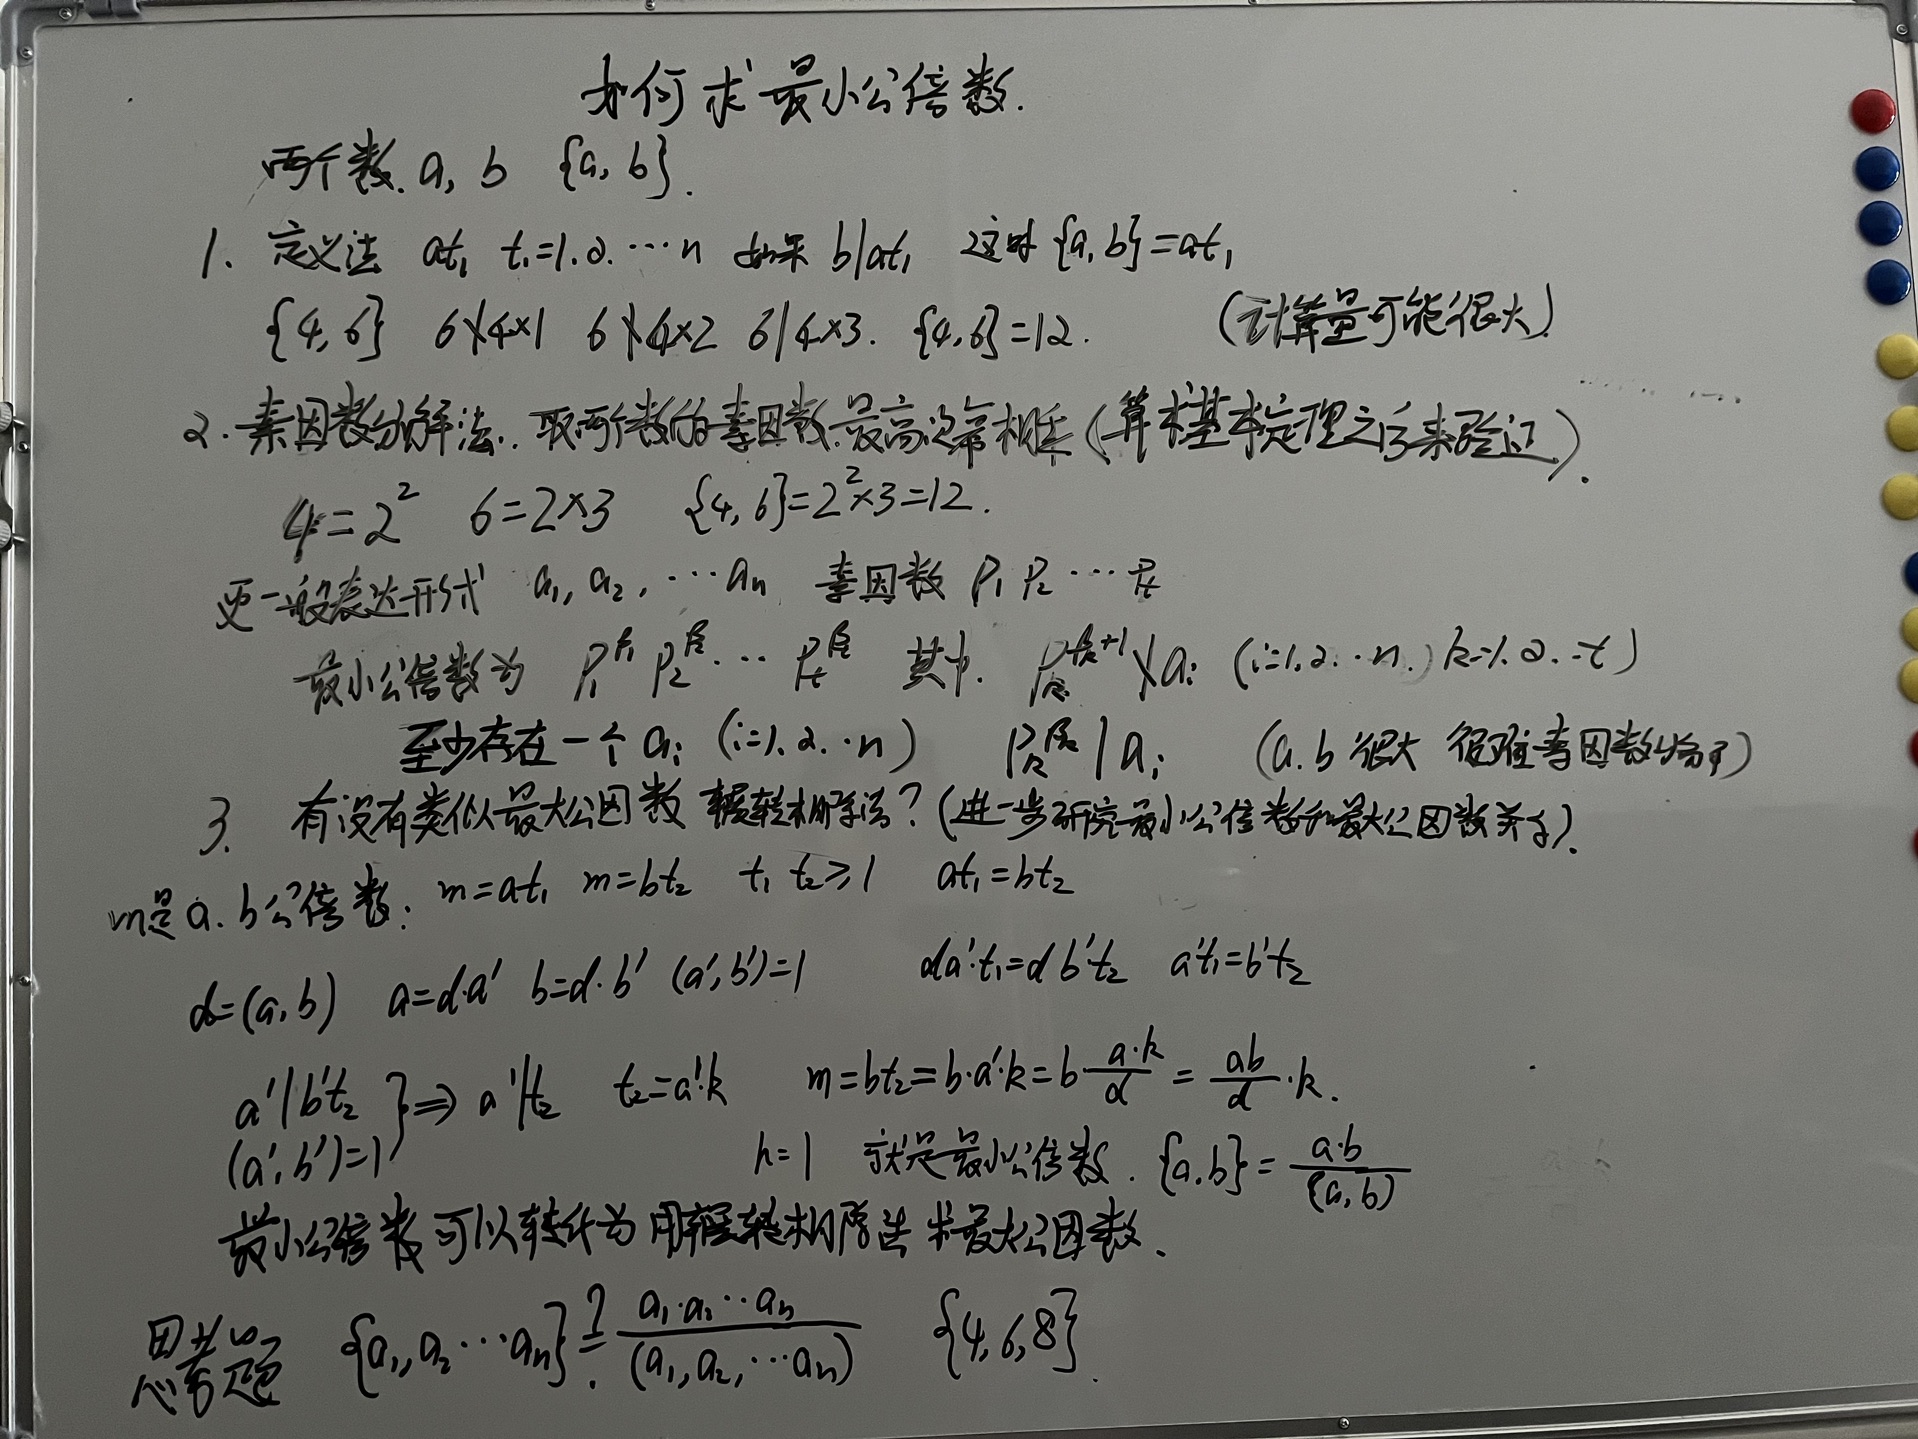 如何求最小公倍数.
两个数. a, b {a, b}.
1. 定义法 at₁ t₁=1.2.⋯n 如果 b|at₁ 这时 {a, b}=at₁
{4, 6} 6∤4×1 6∤4×2 6|4×3. {4,6}=12. (计算量可能很大)
2. 素因数分解法.. 取两个数的素因数最高次幂相乘 (算术基本定理之后来验证).
4=2² 6=2×3 {4, 6}=2²×3=12.
更一般表达形式 a₁, a₂, ⋯aₙ 素因数 P₁ P₂ ⋯ Pₜ
最小公倍数为 P₁^β₁ P₂^β₂ ⋯ Pₜ^βₜ 其中. Pₖ^βₖ+1 ∤ aᵢ (i=1.2.⋅⋅n.) k=1.2.⋅⋅t)
至少存在一个 aᵢ (i=1.2.⋅⋅n) Pₖ^βₖ | aᵢ (a.b 很大 很难素因数分解)
3. 有没有类似最大公因数 辗转相除法? (进一步研究最小公倍数和最大公因数关系).
m是 a. b公倍数: m=at₁ m=bt₂ t₁ t₂≥1 at₁=bt₂
d=(a,b) a=d·a′ b=d·b′ (a′, b′)=1 da′·t₁=d b′t₂ a′t₁=b′t₂
a′|b′t₂ }⇒ a′|t₂ t₂=a′·k m=bt₂=b·a′·k=b·a·k/d = ab/d·k.
(a′, b′)=1 k=1 就是最小公倍数. {a,b}= a·b/(a,b)
最小公倍数可以转化为用辗转相除法求最大公因数.
思考题 {a₁, a₂⋯aₙ} ?= a₁·a₂⋯aₙ/(a₁, a₂, ⋯aₙ) {4,6,8}.